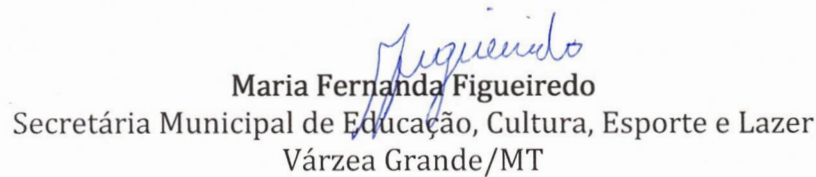 Figueiredo
Maria Fernanda Figueiredo
Secretária Municipal de Educação, Cultura, Esporte e Lazer
Várzea Grande/MT